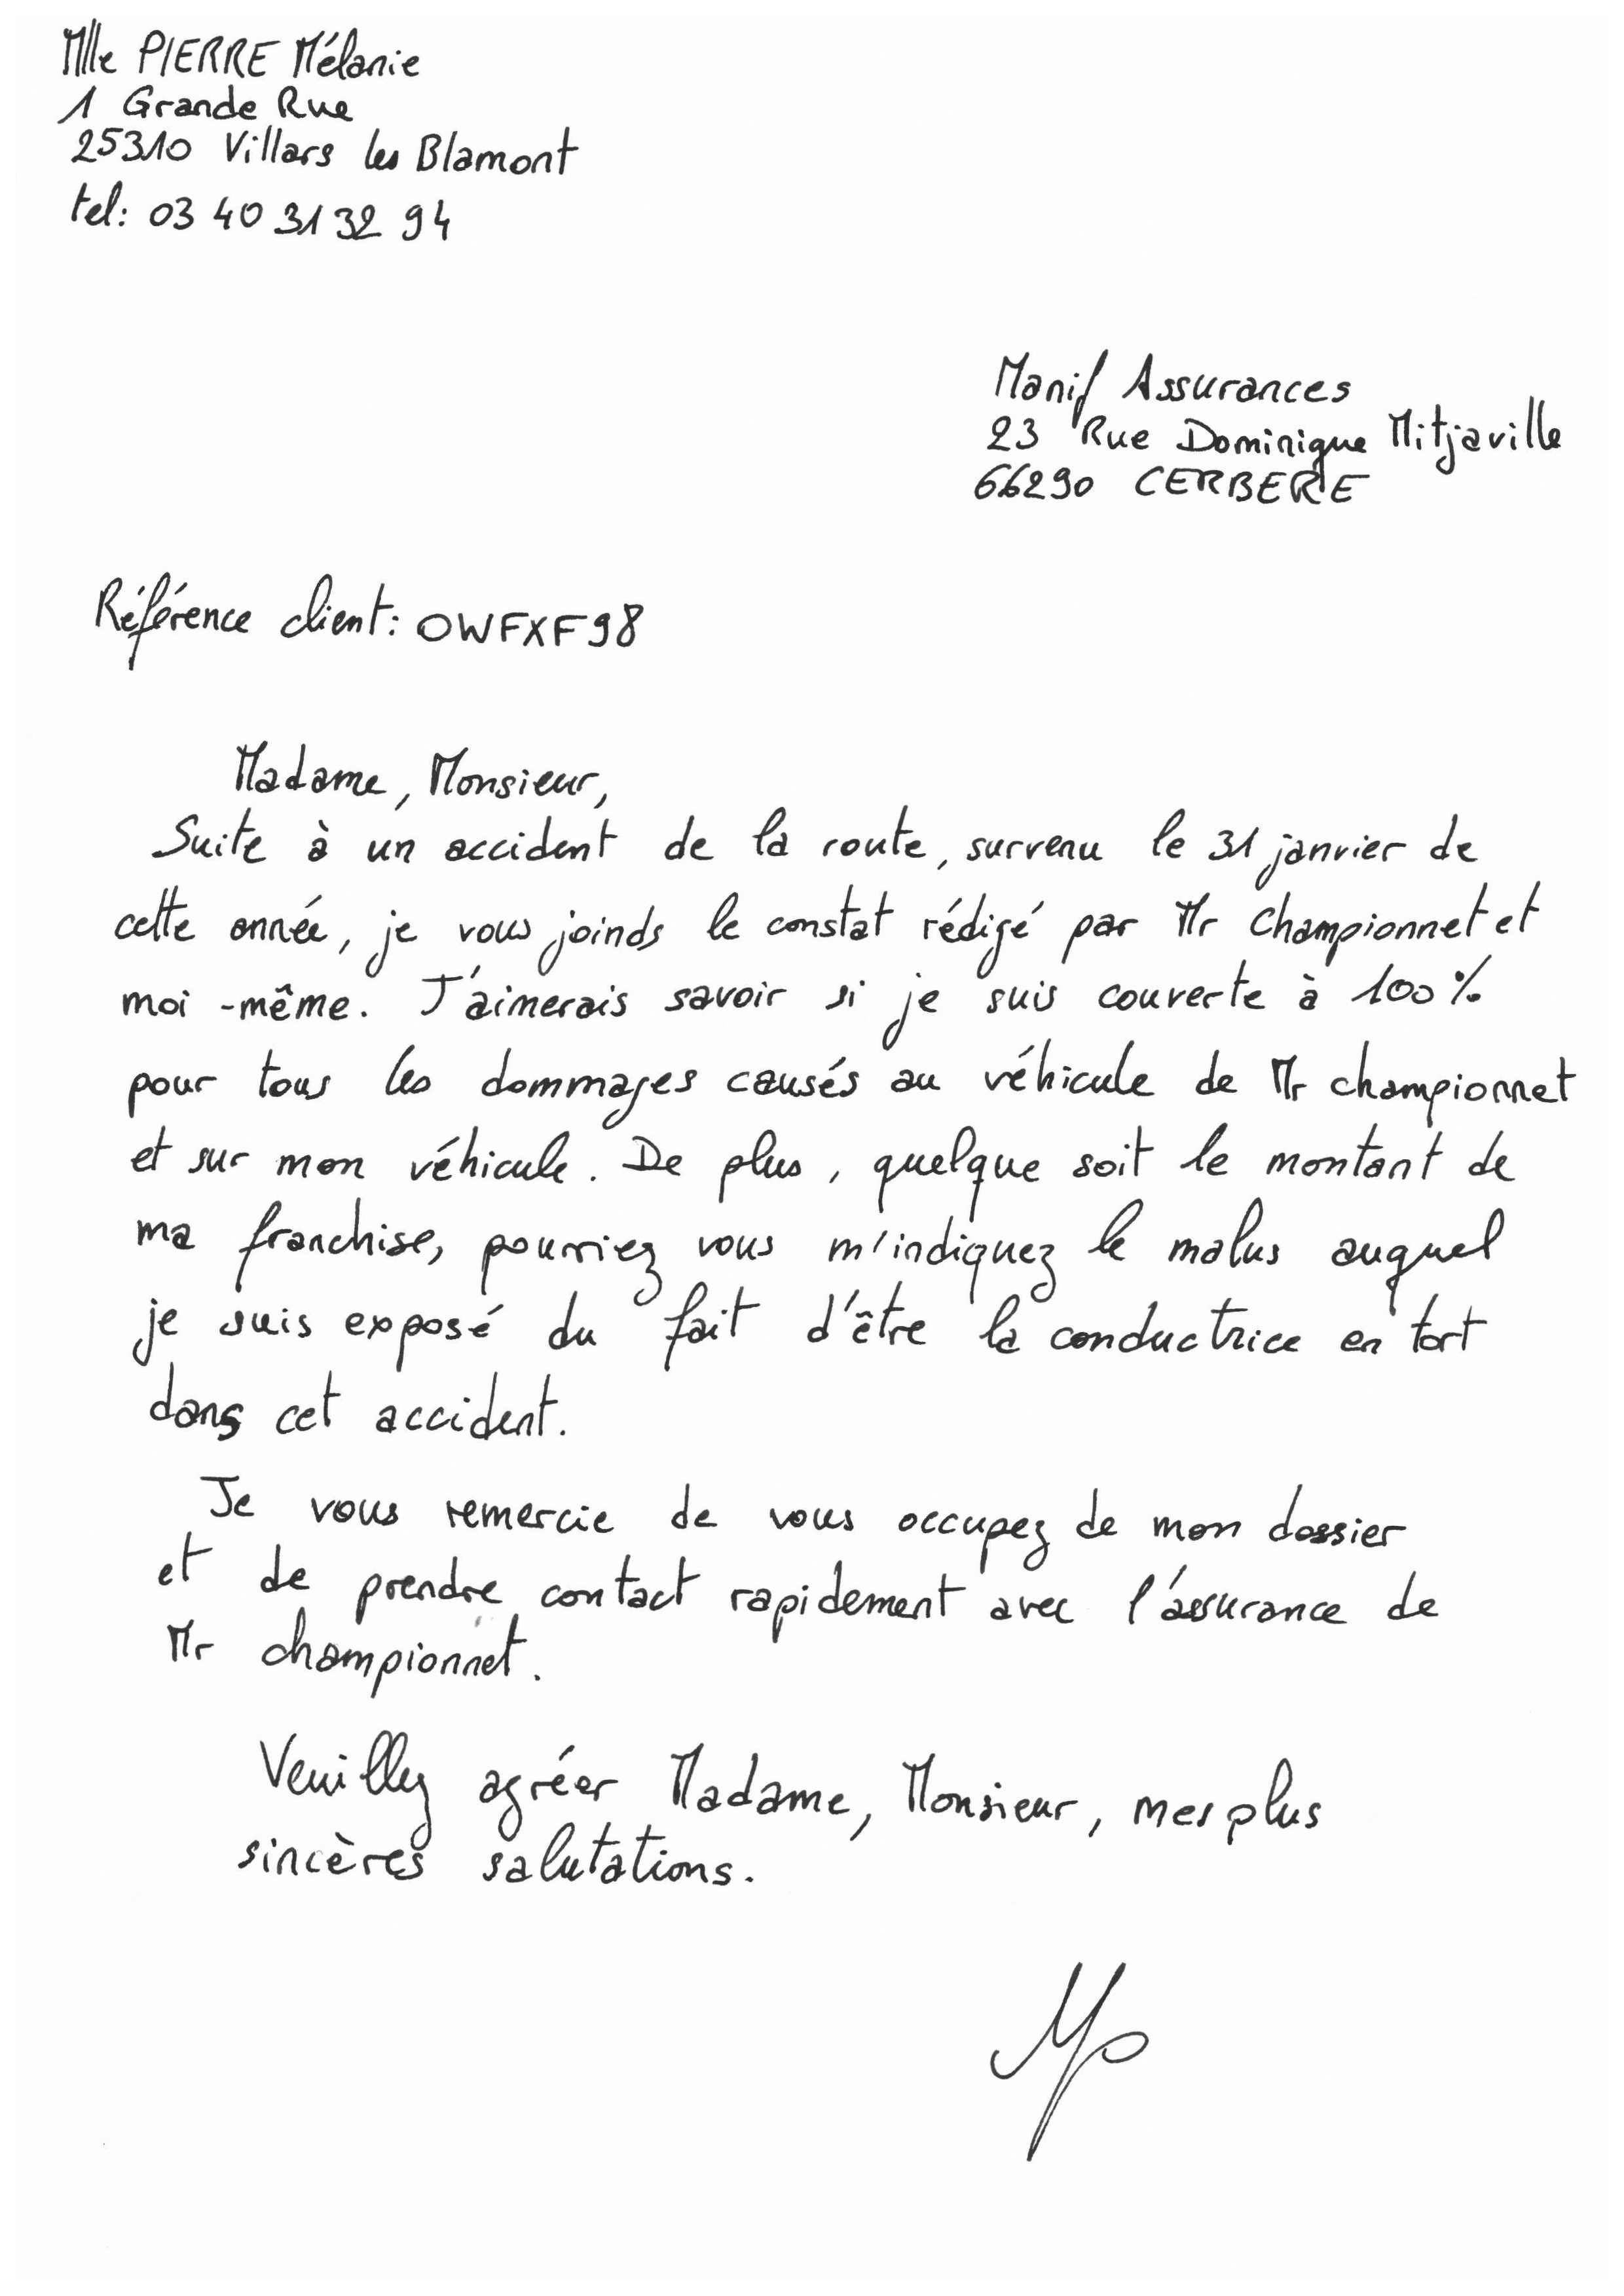 Mlle PIERRE Mélanie
1 Grande Rue
25310 Villars les Blamont
tel: 03 40 31 32 94
Manif Assurances
23 Rue Dominique Mitjaville
66290 CERBERE
Référence client: OWFXF98
Madame, Monsieur,
Suite à un accident de la route, survenu le 31 janvier de
cette année, je vous joinds le constat rédigé par Mr Championnet et
moi-même. J'aimerais savoir si je suis couverte à 100%
pour tous les dommages causés au véhicule de Mr championnet
et sur mon véhicule. De plus, quelque soit le montant de
ma franchise, pourriez vous m'indiquez le malus auquel
je suis exposé du fait d'être la conductrice en tort
dans cet accident.
Je vous remercie de vous occupez de mon dossier
et de prendre contact rapidement avec l'assurance de
Mr championnet.
Veuillez agréer Madame, Monsieur, mes plus
sincères salutations.
MP